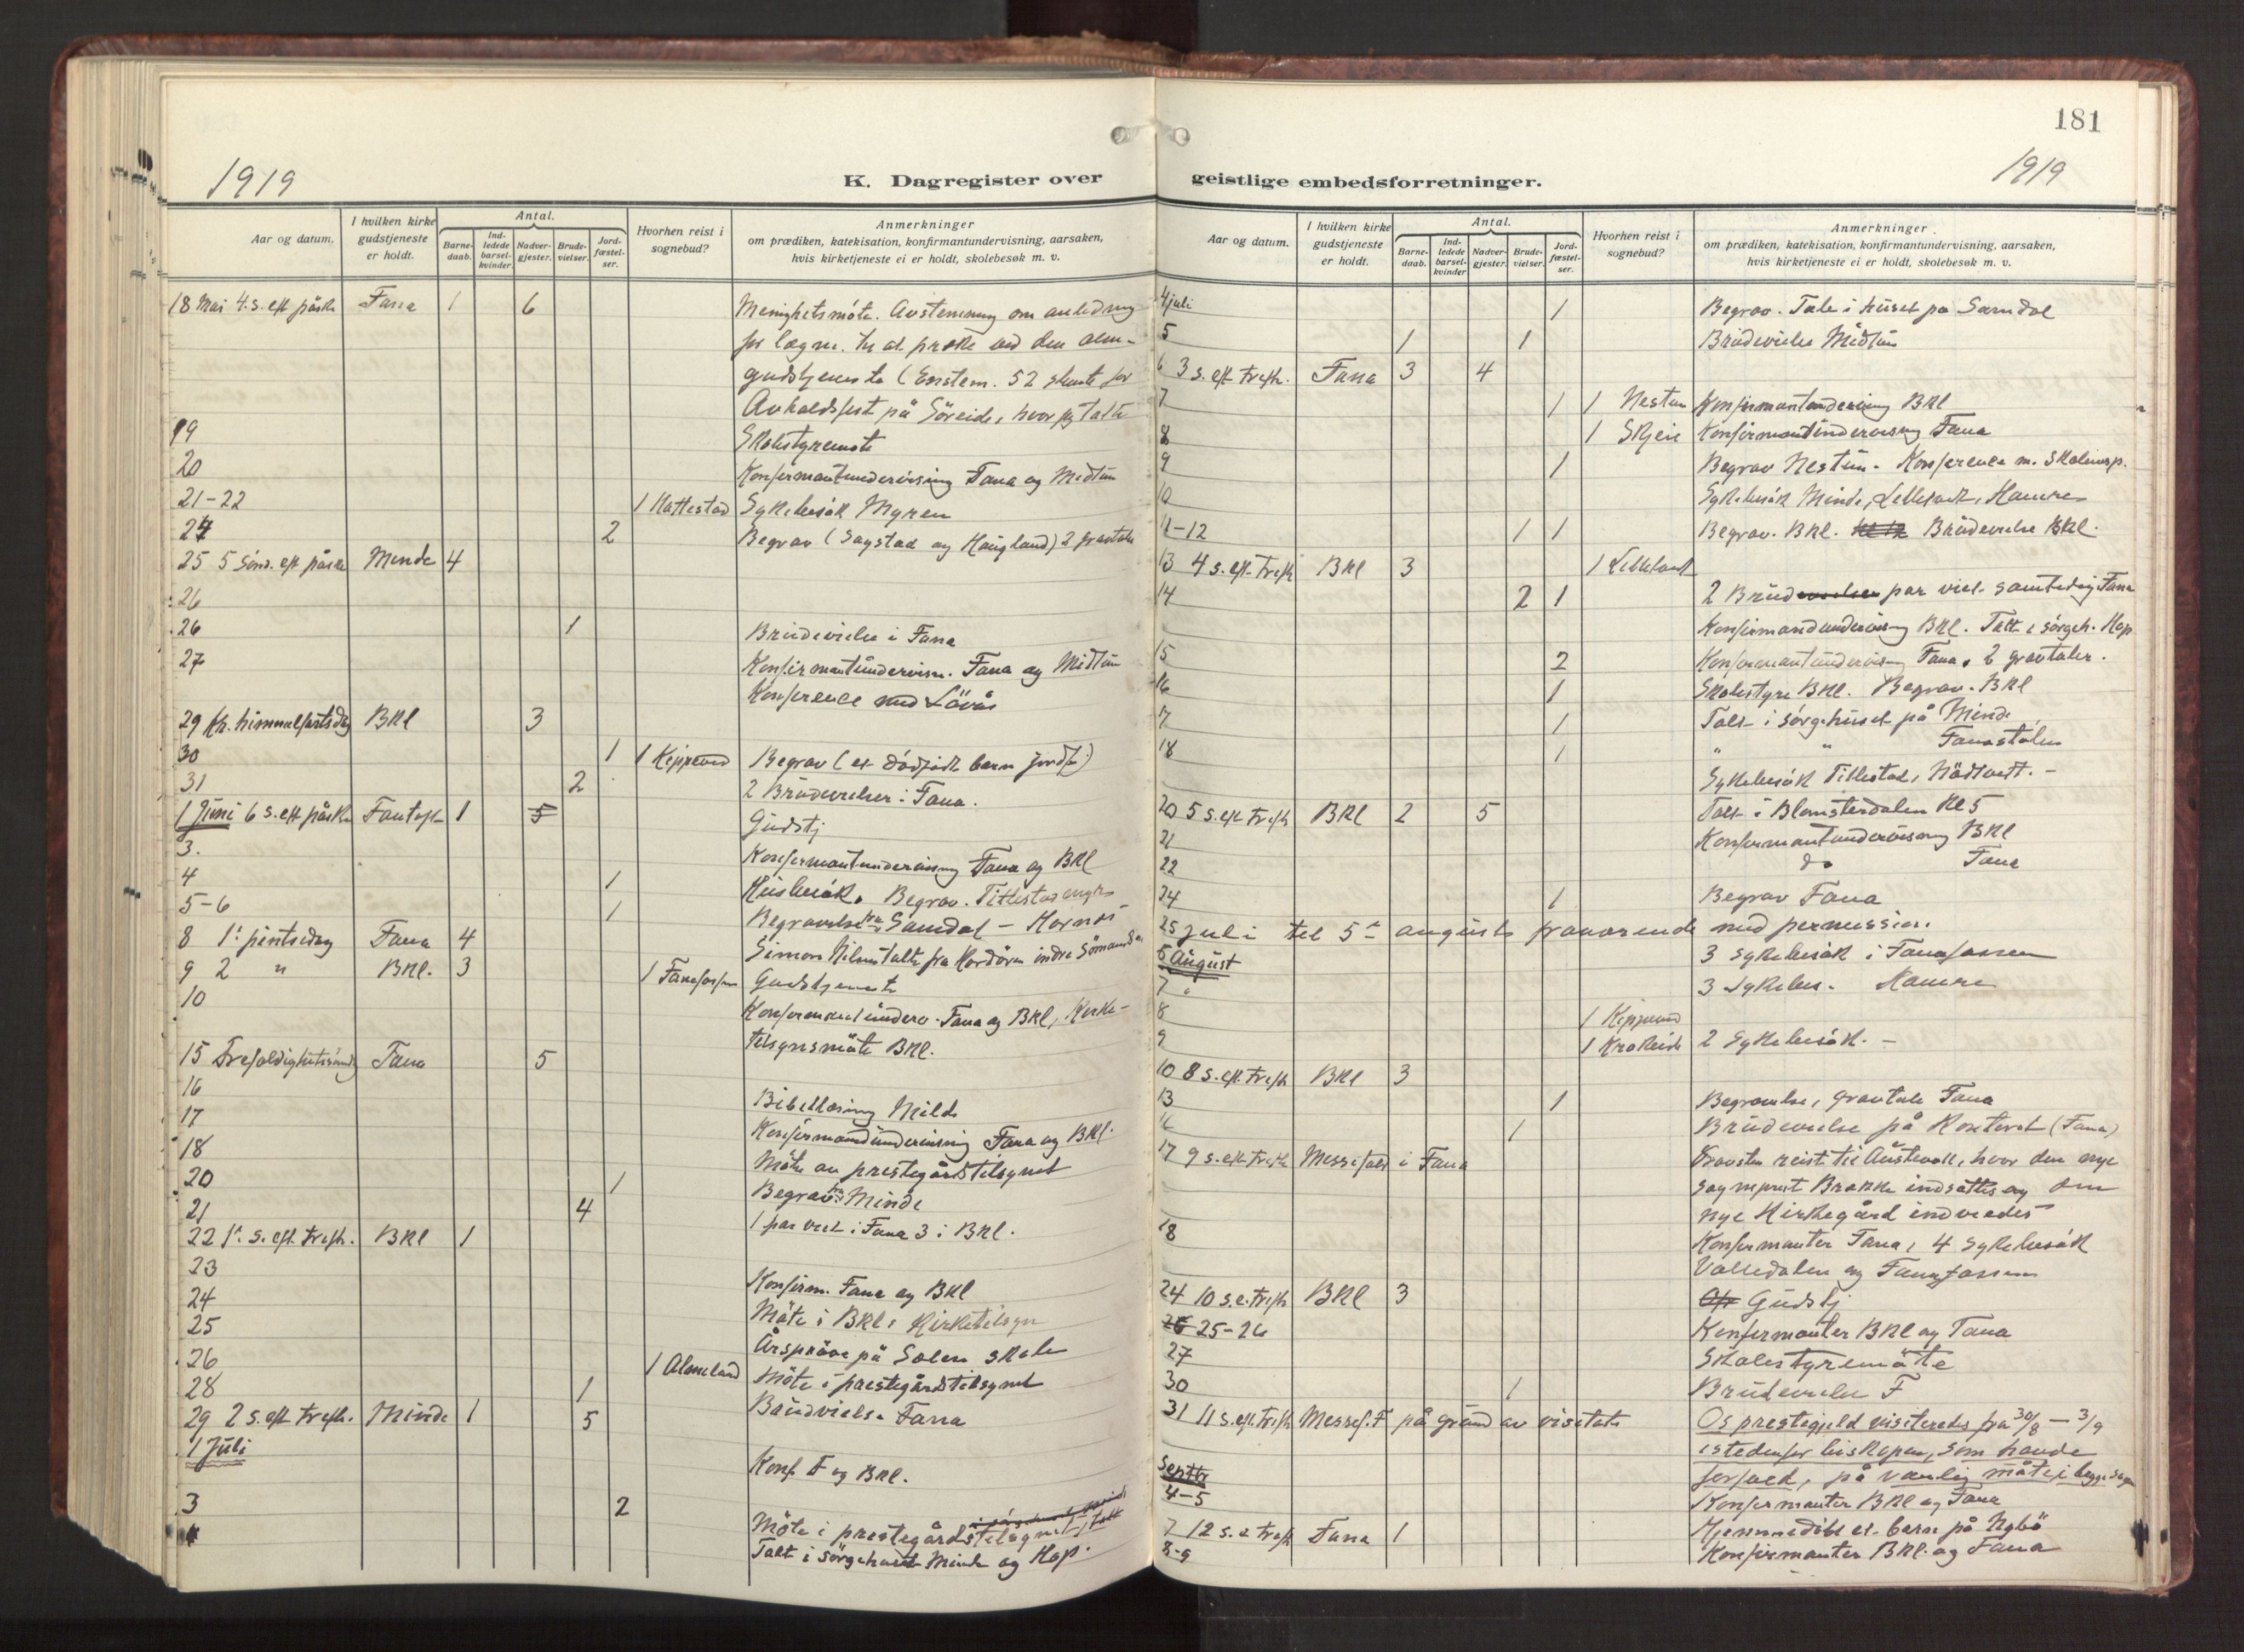 181
1919
K. Dagregister over
geistlige embedsforretninger.
1919
Aar og datum.
I hvilken kirke gudstjeneste er holdt.
Antal.
Barne-daab.
Ind-ledede barsel-kvinder.
Nadver-gjester.
Brude-vielser.
Jord-fæstel-ser.
Hvorhen reist i sognebud?
Anmerkninger
om prædiken, katekisation, konfirmantundervisning, aarsaken,
hvis kirketjeneste ei er holdt, skolebesøk m. v.
18 Mai 4. s. eft påske Fana 1 6 Menighetsmöte. Avstemning om anledning
for lægm. til at præke ved den alm-
gudstjeneste (Enstem. 52 stemte for
Avholdsfest på Söreide, hvor jeg talte
19 Skolestyremöte
20 Konfirmantundervisning Fana og Midtun
21-22 1 Hattestad Sykebesök Myren
24 2 Begrav (Sagstad og Haugland) 2 gravtaler
25 5 sönd. eft påske Minde 4
26
26 1 Brudevielse i Fana
27 Konfirmantundervisn. Fana og Midtun
Konference med Lövås
29 Kr. himmelfartsdag BKl 3
30 1 1 Kipperd Begrav (et dödfödt barn jordf.)
31 2 2 Brudevielser i Fana.
1 Juni 6 s. eft påske Fantoft 1 5 Gudstj
3. Konfirmantundervisning Fana og BKl
4 1 Husbesök. Begrav. Titlestad
5-6 1 Begravelse fra Samdal - Hornnes
8 1. pintsedag Fana 4 Simon talte fra Hordören indre Sömands
9 2 " BKl. 3 1 Fanefossen Gudstjeneste
10 Konfirmantunderv. Fana og BKl, Kirke-
tilsynsmöte BKl.
15 Trefoldighetssöndag Fana 5
16 Bibellæsning Milde
17 Konfirmandundervisning Fana og BKl.
18 Möte av prestegårdstilsynet
20 1 Begrav fra Minde
21 4 1 par viet i Fana 3 i BKl.
22 1. s. eft. trefh. BKl 1
23 Konfirm. Fana og BKl
24 Möte i BKl: Kirketilsyn
25 Årspröve på Solen skole
26 1 Almeland Möte i prestegårdstilsynet
28 1 Brudvielse Fana
29 2 s. eft trefh. Minde 1 5
1 Juli Konf F og BKl.
3 2 Möte i prestegårdstilsynet
Talt i sörgehuset Minde og Hop.
Aar og datum.
I hvilken kirke gudstjeneste er holdt.
Antal.
Barne-daab.
Ind-ledede barsel-kvinder
Nadver-gjester.
Brude-vielser.
Jord-fæstel-ser.
Hvorhen reist i sognebud?
Anmerkninger
om prædiken, katekisation, konfirmantundervisning, aarsaken,
hvis kirketjeneste ei er holdt, skolebesøk m. v.
4 juli 1 Begrav. Tale i huset på Samdal
5 1 1 Brudevielse Midtun
6 3 s. eft trefh. Fana 3 4
7 1 1 Nestun Konfirmantundervisning BKl
8 1 Skjeie Konfirmantundervisning Fana
9 1 Begrav Nestun. Konference m. Skoleinsp.
10 Sykebesök Minde, Hamre
11-12 1 1 Begrav. BKl. Brudevielse BKl.
13 4 s. eft. trefh BKl 3 1
14 2 1 2 Brudepar viet samtidig Fana
Konfirmandundervisning BKl. Talt i sörgeh. Hop
15 2 Konfirmantundervisning Fana, 2 gravtaler.
16 1 Skolestyre BKl. Begrav. BKl
17 1 Talt i sörgehuset på Minde
18 1 " " Fanastölen
Sykebesök Titlestad, Nödtvedt. -
20 5 s. eft trefh BKl 2 5 Talt i Blomsterdalen Kl 5
21 Konfirmantundervisning BKl
22 do Fana
24 1 Begrav Fana
25 juli til 5te august fraværende med permission.
5 August 3 sykebesök i Fanafossen
7 " 3 Sykebes. Hamre
8 1 Kipperd
9 1 Krokeide 2 Sykebesök. -
10 8 s. eft. trefh BKl 3
13 1 Begravelse, gravtale Fana
16 1 Brudevielse på Klosteret (Fana)
17 9 s. eft trefh Messefald i Fana Provsten reist til Austevoll, hvor den nye
sogneprest Brække indsattes og den
nye kirkegård indviedes
18 Konfirmanter Fana, 4 sykebesök
Valledalen og Fanafossen
24 10 s. e. trefh BKl 3 Gudstj
25-26 Konfirmanter BKl og Fana
27 Skolestyremöte
30 1 Brudevielse F
31 11 s. eft. trefh Messef. F på grund av visitats Os prestegjeld visiteredes fra 30/8 - 3/9
istedenfor biskopen, som havde
forfald, på vanlig måte i begge sogn
Septbr
4-5 Konfirmanter BKl og Fana
7 12 s. e trefh Fana 1 Hjemmedöbt et barn på Nybö
8-9 Konfirmanter BKl. og Fana